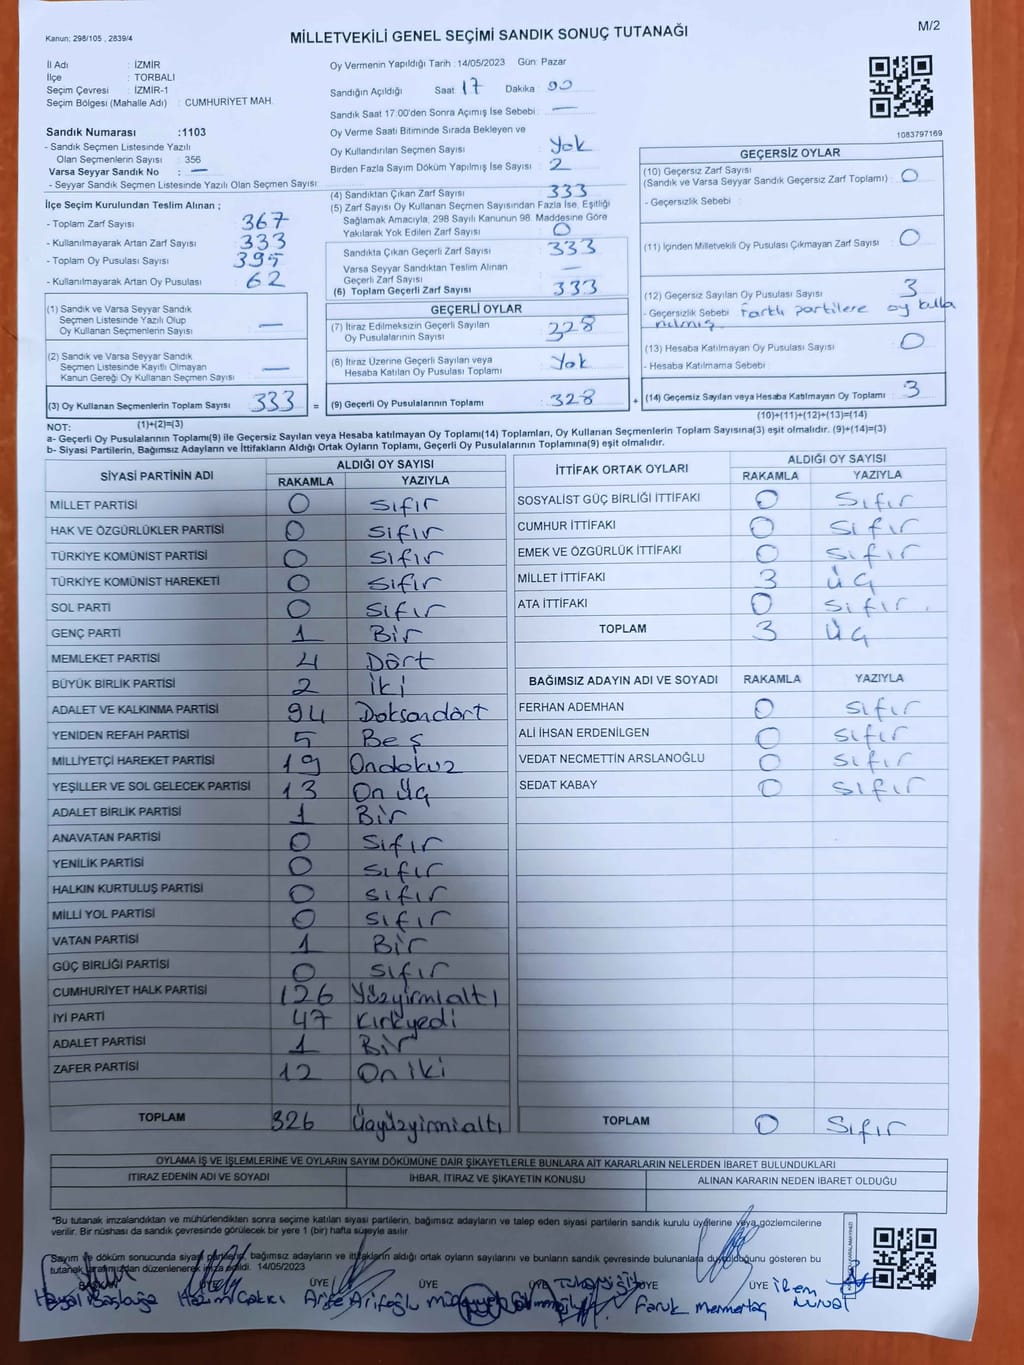 M/2
Kanun; 298/105 , 2839/4
MİLLETVEKİLİ GENEL SEÇİMİ SANDIK SONUÇ TUTANAĞI
İl Adı : İZMİR
İlçe : TORBALI
Seçim Çevresi : İZMİR-1
Seçim Bölgesi (Mahalle Adı) : CUMHURİYET MAH.
Sandık Numarası :1103
- Sandık Seçmen Listesinde Yazılı
Olan Seçmenlerin Sayısı : 356
Varsa Seyyar Sandık No : —
- Seyyar Sandık Seçmen Listesinde Yazılı Olan Seçmen Sayısı:
İlçe Seçim Kurulundan Teslim Alınan ;
- Toplam Zarf Sayısı 367
- Kullanılmayarak Artan Zarf Sayısı 333
- Toplam Oy Pusulası Sayısı 395
- Kullanılmayarak Artan Oy Pusulası 62
(1) Sandık ve Varsa Seyyar Sandık
Seçmen Listesinde Yazılı Olup
Oy Kullanan Seçmenlerin Sayısı —
(2) Sandık ve Varsa Seyyar Sandık
Seçmen Listesinde Kayıtlı Olmayan
Kanun Gereği Oy Kullanan Seçmen Sayısı —
(3) Oy Kullanan Seçmenlerin Toplam Sayısı 333 =
(1)+(2)=(3)
Oy Vermenin Yapıldığı Tarih :14/05/2023 Gün: Pazar
Sandığın Açıldığı Saat 17 Dakika :
Sandık Saat 17:00'den Sonra Açımış İse Sebebi : —
Oy Verme Saati Bitiminde Sırada Bekleyen ve
Oy Kullandırılan Seçmen Sayısı : Yok
Birden Fazla Sayım Döküm Yapılmış İse Sayısı : 2
(4) Sandıktan Çıkan Zarf Sayısı 333
(5) Zarf Sayısı Oy Kullanan Seçmen Sayısından Fazla İse, Eşitliği
Sağlamak Amacıyla, 298 Sayılı Kanunun 98. Maddesine Göre
Yakılarak Yok Edilen Zarf Sayısı 0
Sandıkta Çıkan Geçerli Zarf Sayısı : 333
Varsa Seyyar Sandıktan Teslim Alınan
Geçerli Zarf Sayısı —
(6) Toplam Geçerli Zarf Sayısı : 333
GEÇERLİ OYLAR
(7) İtiraz Edilmeksizin Geçerli Sayılan
Oy Pusulalarının Sayısı 328
(8) İtiraz Üzerine Geçerli Sayılan veya
Hesaba Katılan Oy Pusulası Toplamı Yok
(9) Geçerli Oy Pusulalarının Toplamı : 328 +
1083797169
GEÇERSİZ OYLAR
(10) Geçersiz Zarf Sayısı
(Sandık ve Varsa Seyyar Sandık Geçersiz Zarf Toplamı) : 0
- Geçersizlik Sebebi :
(11) İçinden Milletvekili Oy Pusulası Çıkmayan Zarf Sayısı : 0
(12) Geçersiz Sayılan Oy Pusulası Sayısı 3
- Geçersizlik Sebebi farklı partilere oy kulla
nılmış
(13) Hesaba Katılmayan Oy Pusulası Sayısı 0
- Hesaba Katılmama Sebebi :
(14) Geçersiz Sayılan veya Hesaba Katılmayan Oy Toplamı : 3
(10)+(11)+(12)+(13)=(14)
NOT:
a- Geçerli Oy Pusulalarının Toplamı(9) ile Geçersiz Sayılan veya Hesaba katılmayan Oy Toplamı(14) Toplamları, Oy Kullanan Seçmenlerin Toplam Sayısına(3) eşit olmalıdır. (9)+(14)=(3)
b- Siyasi Partilerin, Bağımsız Adayların ve İttifakların Aldığı Ortak Oyların Toplamı, Geçerli Oy Pusulalarının Toplamına(9) eşit olmalıdır.
SİYASİ PARTİNİN ADI ALDIĞI OY SAYISI
RAKAMLA YAZIYLA
MİLLET PARTİSİ 0 Sıfır
HAK VE ÖZGÜRLÜKLER PARTİSİ 0 Sıfır
TÜRKİYE KOMÜNİST PARTİSİ 0 Sıfır
TÜRKİYE KOMÜNİST HAREKETİ 0 Sıfır
SOL PARTİ 0 Sıfır
GENÇ PARTİ 1 Bir
MEMLEKET PARTİSİ 4 Dört
BÜYÜK BİRLİK PARTİSİ 2 İki
ADALET VE KALKINMA PARTİSİ 94 Doksandört
YENİDEN REFAH PARTİSİ 5 Beş
MİLLİYETÇİ HAREKET PARTİSİ 19 Ondokuz
YEŞİLLER VE SOL GELECEK PARTİSİ 13 On Üç
ADALET BİRLİK PARTİSİ 1 Bir
ANAVATAN PARTİSİ 0 Sıfır
YENİLİK PARTİSİ 0 Sıfır
HALKIN KURTULUŞ PARTİSİ 0 Sıfır
MİLLİ YOL PARTİSİ 0 Sıfır
VATAN PARTİSİ 1 Bir
GÜÇ BİRLİĞİ PARTİSİ 0 Sıfır
CUMHURİYET HALK PARTİSİ 126 Yüzyirmialtı
İYİ PARTİ 47 Kırkyedi
ADALET PARTİSİ 1 Bir
ZAFER PARTİSİ 12 On iki
TOPLAM 326 Üçyüzyirmialtı
İTTİFAK ORTAK OYLARI ALDIĞI OY SAYISI
RAKAMLA YAZIYLA
SOSYALİST GÜÇ BİRLİĞİ İTTİFAKI 0 Sıfır
CUMHUR İTTİFAKI 0 Sıfır
EMEK VE ÖZGÜRLÜK İTTİFAKI 0 Sıfır
MİLLET İTTİFAKI 3 Üç
ATA İTTİFAKI 0 Sıfır
TOPLAM 3 Üç
BAĞIMSIZ ADAYIN ADI VE SOYADI RAKAMLA YAZIYLA
FERHAN ADEMHAN 0 Sıfır
ALİ İHSAN ERDENİLGEN 0 Sıfır
VEDAT NECMETTİN ARSLANOĞLU 0 Sıfır
SEDAT KABAY 0 Sıfır
TOPLAM 0 Sıfır
OYLAMA İŞ VE İŞLEMLERİNE VE OYLARIN SAYIM DÖKÜMÜNE DAİR ŞİKAYETLERLE BUNLARA AİT KARARLARIN NELERDEN İBARET BULUNDUKLARI
İTİRAZ EDENİN ADI VE SOYADI İHBAR, İTİRAZ VE ŞİKAYETİN KONUSU ALINAN KARARIN NEDEN İBARET OLDUĞU
*Bu tutanak imzalandıktan ve mühürlendikten sonra seçime katılan siyasi partilerin, bağımsız adayların ve talep eden siyasi partilerin sandık kurulu üyelerine veya gözlemcilerine
verilir. Bir nüshası da sandık çevresinde görülecek bir yere 1 (bir) hafta süreyle asılır
Sayım ve döküm sonucunda siyasi partilerin, bağımsız adayların ve ittifakların aldığı ortak oyların sayılarını ve bunların sandık çevresinde bulunanlara duyurulduğunu gösteren bu
tutanak tarafımızdan düzenlenerek imza edildi. 14/05/2023
BAŞKAN ÜYE ÜYE ÜYE ÜYE ÜYE ÜYE
Arife Arifoğlu Faruk Mermertaş